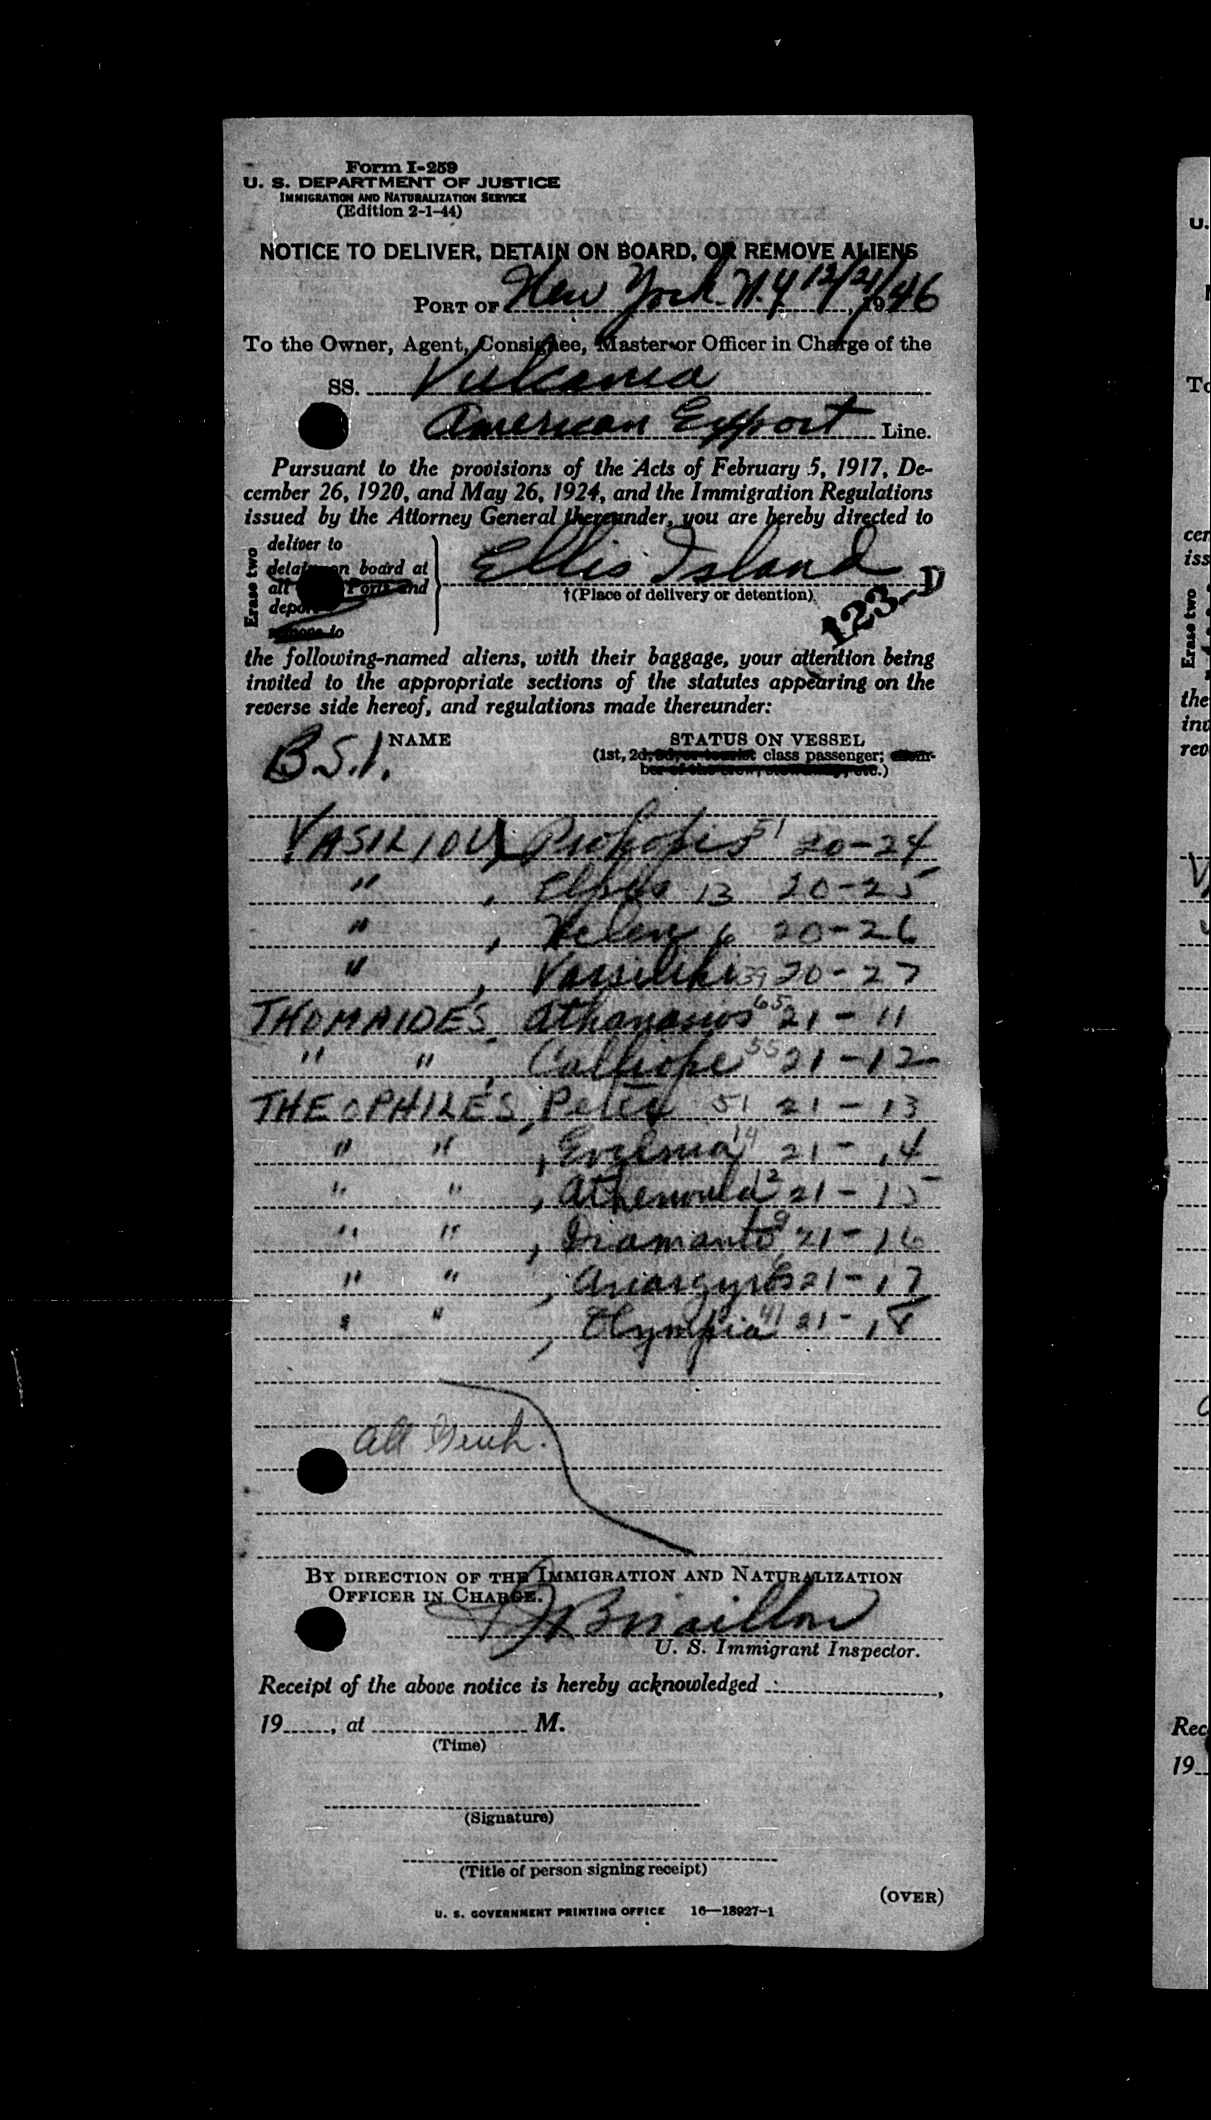 Form I-259
U. S. DEPARTMENT OF JUSTICE
IMMIGRATION AND NATURALIZATION SERVICE
(Edition 2-1-44)
NOTICE TO DELIVER, DETAIN ON BOARD, OR REMOVE ALIENS
PORT OF New York N.Y 12/21/, 1946
To the Owner, Agent, Consignee, Master or Officer in Charge of the
SS. Vulcania
American Export Line.
Pursuant to the provisions of the Acts of February 5, 1917, De-
cember 26, 1920, and May 26, 1924, and the Immigration Regulations
issued by the Attorney General thereunder, you are hereby directed to
Erase two
deliver to
detain on board at
all Ports and
deport
remove to
Ellis Island
†(Place of delivery or detention)
123-D
the following-named aliens, with their baggage, your attention being
invited to the appropriate sections of the statutes appearing on the
reverse side hereof, and regulations made thereunder:
B.S.I. NAME STATUS ON VESSEL
(1st, 2d, 3d, or tourist class passenger; mem-
ber of the crew, stowaway, etc.)
VASILIOU, Prokopis 51 20-24
" , 13 20-25
" , Helen 6 20-26
" , Vassiliki 39 20-27
THOMAIDES Athanasios 65 21-11
" " , Calliope 55 21-12
THEOPHILES, Peter 51 21-13
" " , Evgenia 14 21-14
" " , Athenoula 12 21-15
" " , Diamanto 9 21-16
" " , Anargyros 21-17
" " , Olympia 41 21-18
all Greek.
BY DIRECTION OF THE IMMIGRATION AND NATURALIZATION
OFFICER IN CHARGE.
U. S. Immigrant Inspector.
Receipt of the above notice is hereby acknowledged ,
19 , at M.
(Time)
(Signature)
(Title of person signing receipt)
(OVER)
U. S. GOVERNMENT PRINTING OFFICE 16—18927-1